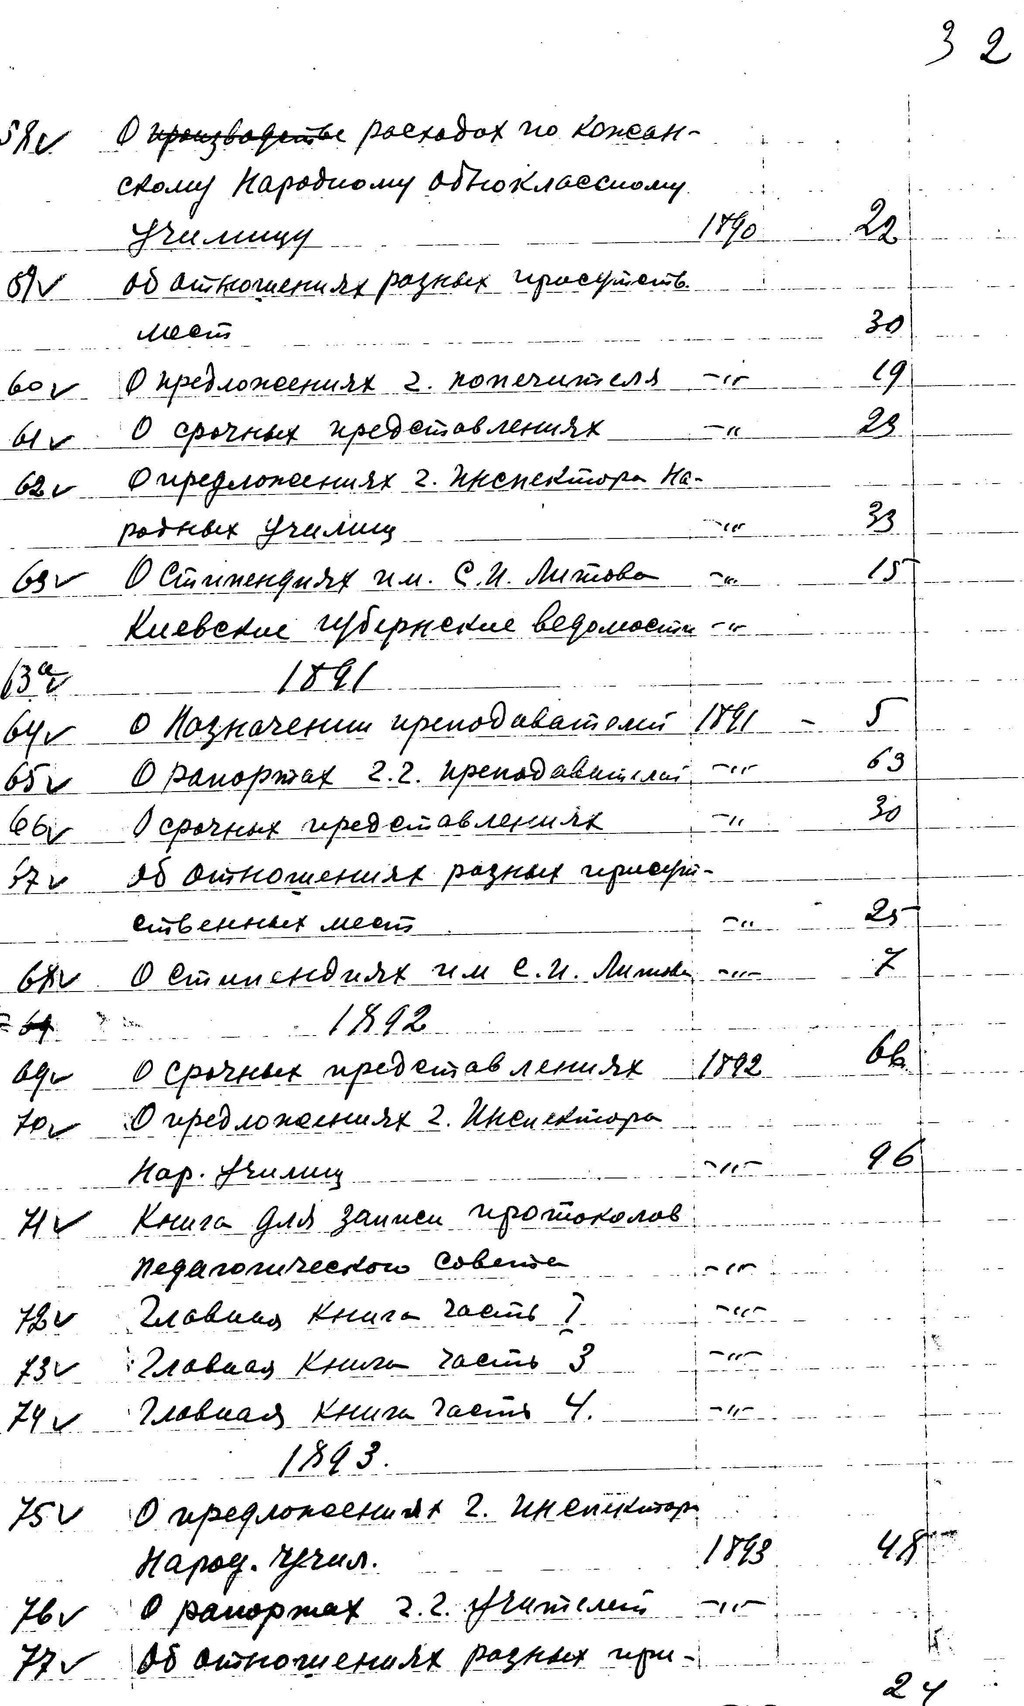 32
58✓ О ~~производстве~~ расходах по Кожан-
скому Народному одноклассному
Училищу 1890 22
59✓ Об отношениях разных присутств.
мест 30
60✓ О предложениях г. попечителя -"- 19
61✓ О срочных представлениях -"- 23
62✓ О предложениях г. Инспектора На-
родных Училищ -"- 33
63✓ О Стипендиях им. С.И. Литова -"- 15
Киевские губернские ведомости -"-
63а✓ 1891
64✓ О Назначении преподавателей 1891 - 5
65✓ О рапортах г.г. преподавателей -"- 63
66✓ О срочных представлениях -"- 30
67✓ Об отношениях разных присут-
ственных мест -"- 25
68✓ О стипендиях им С.И. Литова -"- 7
~~69~~ 1892
69✓ О срочных представлениях 1892
70✓ О предложениях г. Инспектора
Нар. Училищ -"- 96
71✓ Книга для записи протоколов
педагогического совета -"-
72✓ Главная Книга часть I -"-
73✓ Главная Книга часть 3 -"-
74✓ Главная Книга часть 4. -"-
1893.
75✓ О предложениях г. Инспектора
Народ. Учил. 1893 48
76✓ О рапортах г.г. Учителей -"-
77✓ Об отношениях разных при-
24